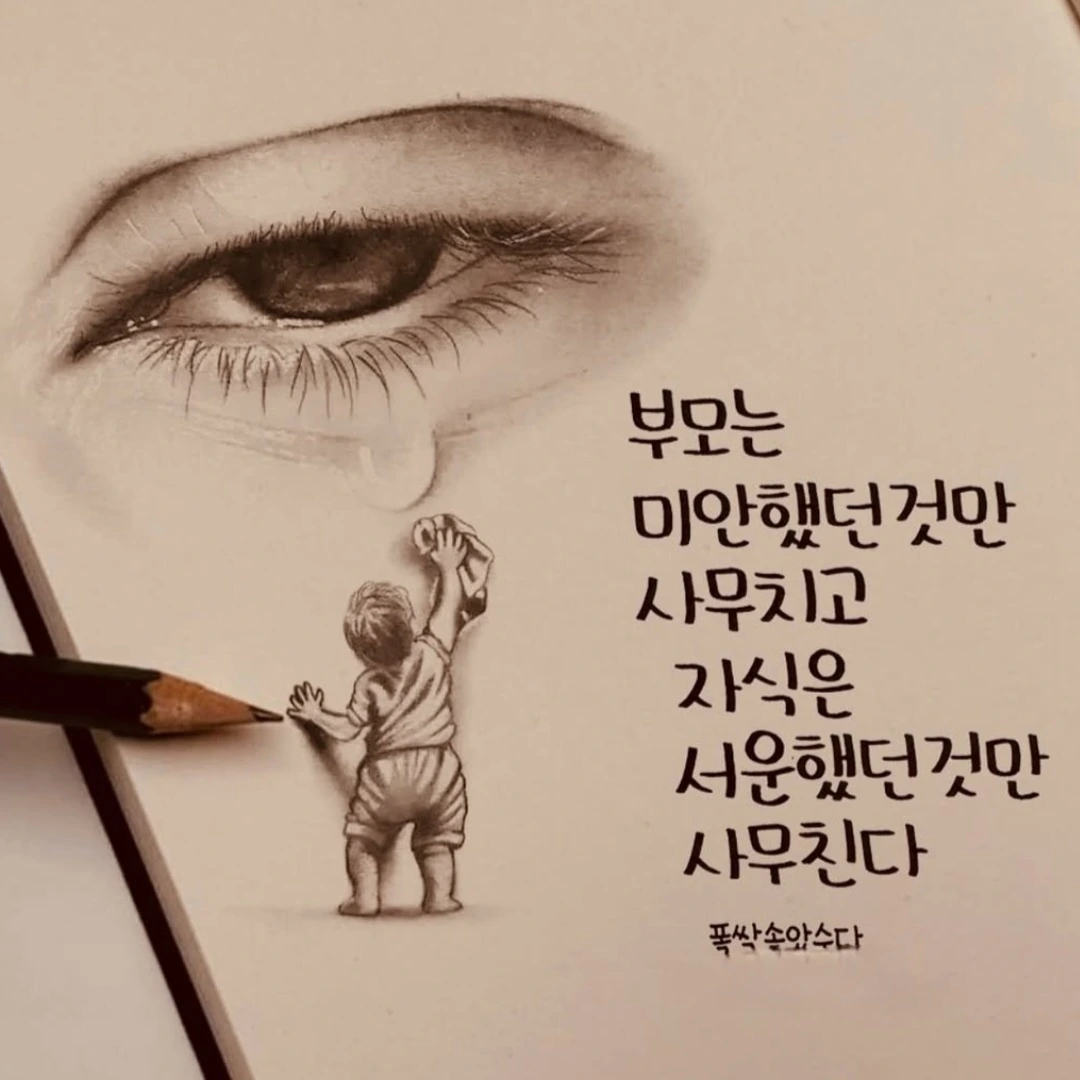 부모는
미안했던것만
사무치고
자식은
서운했던것만
사무친다
폭싹 속았수다